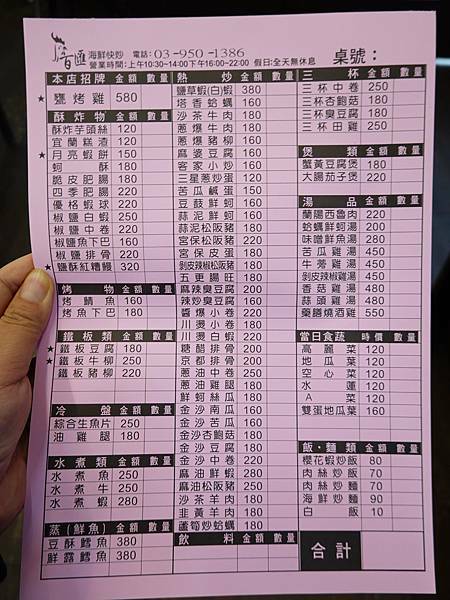 百匯 海鮮快炒 電話:03-950-1386
營業時間:上午10:30~14:00下午16:00~22:00 假日:全天無休息 桌號:
本店招牌 金額 數量
★ 甕烤雞 580
酥炸物 金額 數量
酥炸芋頭絲 120
宜蘭糕渣 120
★ 月亮蝦餅 150
蚵酥 180
脆皮肥腸 180
四季肥腸 220
優格蝦球 220
椒鹽白蝦 250
椒鹽中卷 220
椒鹽魚下巴 160
椒鹽排骨 220
★ 鹽酥紅糟鰻 320
烤物 金額 數量
烤鯖魚 160
烤魚下巴 180
鐵板類 金額 數量
★ 鐵板豆腐 180
★ 鐵板牛柳 250
鐵板豬柳 220
冷盤 金額 數量
綜合生魚片 250
油雞腿 180
水煮類 金額 數量
水煮魚 250
水煮牛 250
水煮蝦 280
蒸(鮮魚) 金額 數量
豆酥鱈魚 380
鮮露鱈魚 380
熱炒 金額 數量
鹽草蝦(白)蝦 380
塔香蛤蠣 160
沙茶牛肉 180
蔥爆牛肉 180
蔥爆豬柳 160
麻婆豆腐 160
客家小炒 160
三星蔥炒蛋 120
苦瓜鹹蛋 150
豆豉鮮蚵 160
蒜泥鮮蚵 160
蒜泥松阪豬 220
宮保松阪豬 220
宮保皮蛋 180
剝皮辣椒松阪豬 180
五更腸旺 180
麻辣臭豆腐 200
辣炒臭豆腐 160
醬爆小卷 220
川燙小卷 180
川燙白蝦 220
糖醋排骨 200
京都排骨 200
蔥油中卷 250
蔥油雞腿 180
鮮蚵絲瓜 180
金沙南瓜 160
金沙苦瓜 160
金沙杏鮑菇 180
金沙豆腐 180
金沙中卷 220
麻油鮮蝦 280
麻油松阪豬 250
沙茶羊肉 180
韭黃羊肉 180
蘆筍炒蛤蠣 180
飲料 金額 數量
三杯 金額 數量
三杯中卷 250
三杯杏鮑菇 180
三杯臭豆腐 180
三杯田雞 250
煲類 金額 數量
蟹黃豆腐煲 180
大腸茄子煲 220
湯品 金額 數量
蘭陽西魯肉 220
蛤蠣鮮蚵湯 200
味噌鮮魚湯 280
苦瓜雞湯 450
牛蒡雞湯 450
剝皮辣椒雞湯 450
香菇雞湯 480
蒜頭雞湯 480
藥膳燒酒雞 550
當日食蔬 時價 數量
高麗菜 120
地瓜葉 120
空心菜 120
水蓮 120
A菜 120
雙蛋地瓜葉 160
飯·麵類 金額 數量
櫻花蝦炒飯 80
肉絲炒飯 70
肉絲炒麵 70
海鮮炒麵 90
白飯 10
合計